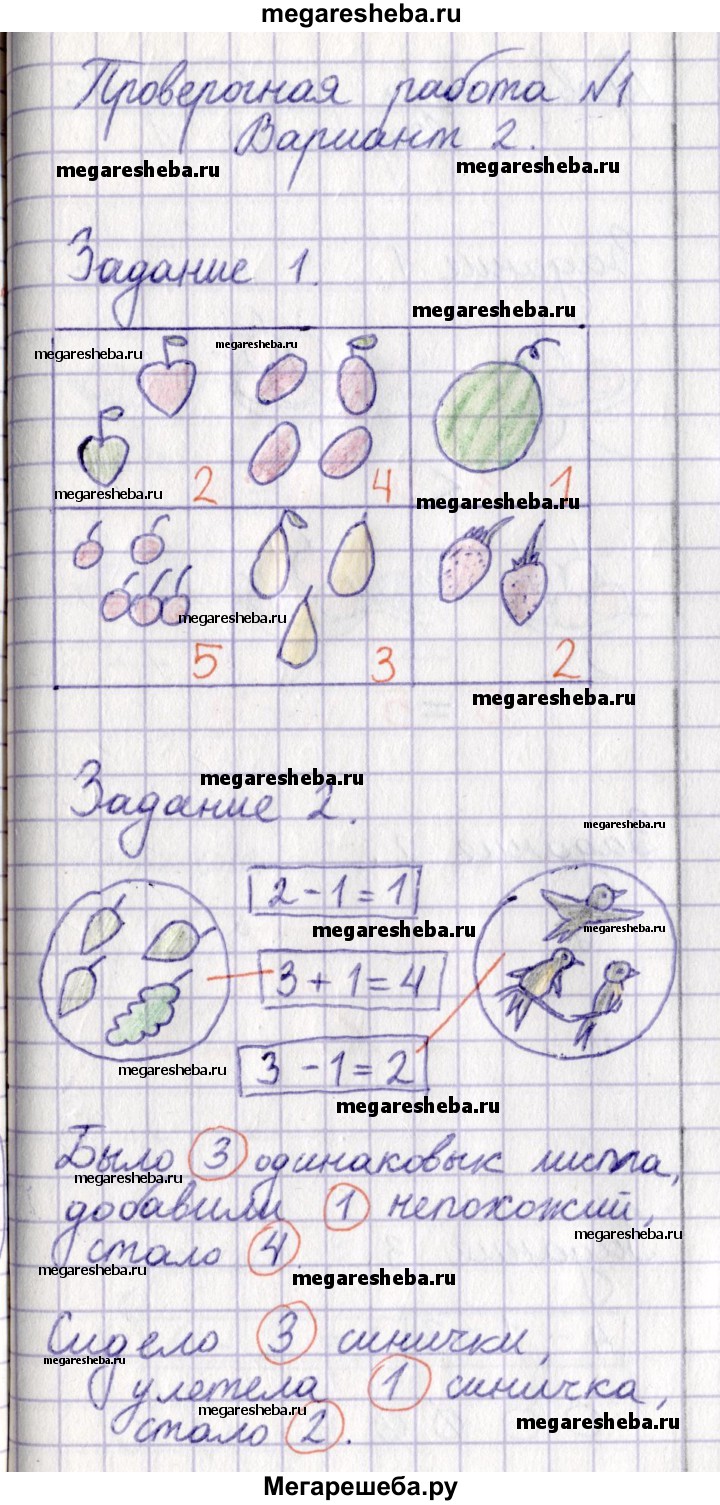 megaresheba.ru
Проверочная работа №1
Вариант 2.
megaresheba.ru
megaresheba.ru
Задание 1.
megaresheba.ru
megaresheba.ru
megaresheba.ru
2
4
1
megaresheba.ru
megaresheba.ru
megaresheba.ru
5
3
2
megaresheba.ru
megaresheba.ru
Задание 2.
megaresheba.ru
2-1=1
megaresheba.ru
megaresheba.ru
3+1=4
3-1=2
megaresheba.ru
megaresheba.ru
Было 3 одинаковык листа,
megaresheba.ru
добавили 1 непохожий,
megaresheba.ru
стало 4.
megaresheba.ru
megaresheba.ru
Сидело 3 синички,
megaresheba.ru
улетела 1 синичка,
megaresheba.ru
megaresheba.ru
стало 2.
Мегарешеба.ру